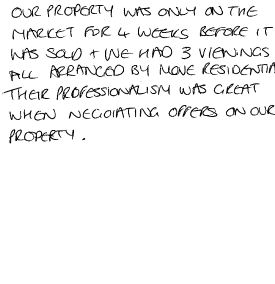 OUR PROPERTY WAS ONLY ON THE
MARKET FOR 4 WEEKS BEFORE IT
WAS SOLD + WE HAD 3 VIENINGS
ALL ARRANGED BY MOVE RESIDENTIA
THEIR PROFESSIONALISM WAS GREAT
WHEN NEGOIATING OFFERS ON OUR
PROPERTY.